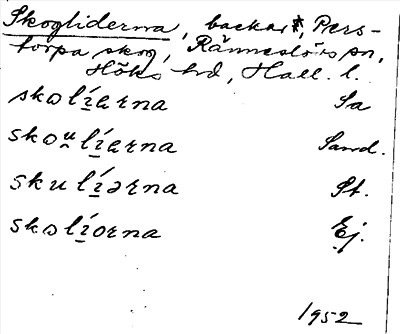 Skogliderna, backar, Pers-
torpa skog, Ränneslövs sn,
Höks hd, Hall. l.
skolíarna Sa
skoulíarna Sand.
skulíərna St.
skolíorna Ej.
1952